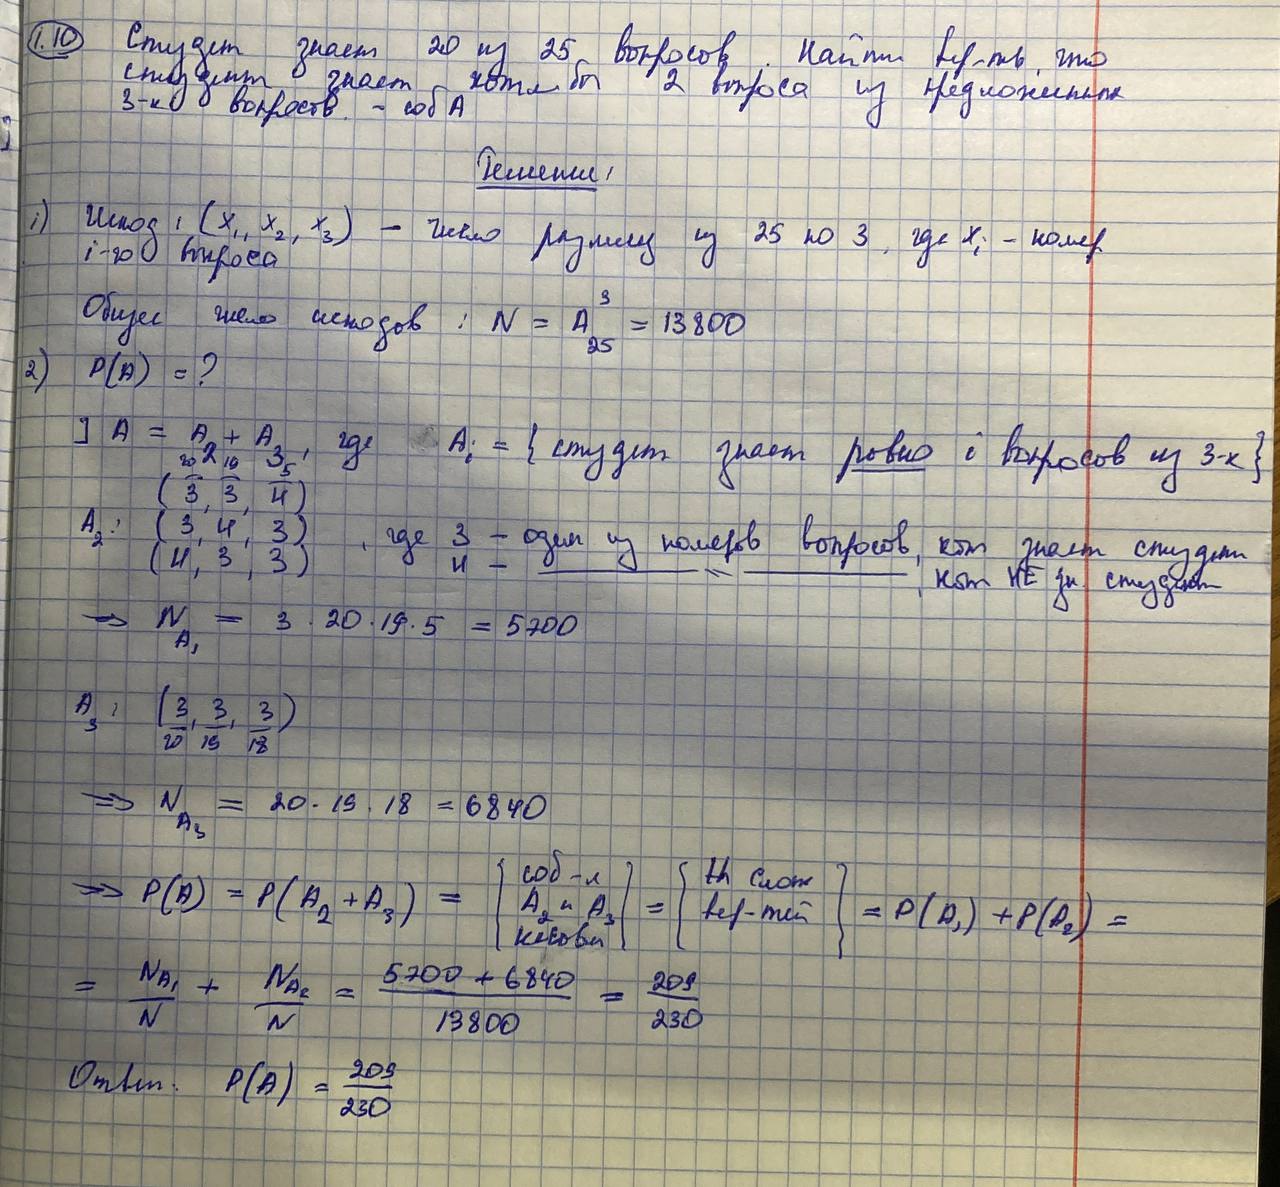 1.10 Студент знает 20 из 25 вопросов. Найти вер-ть, что
студент знает хотя бы 2 вопроса из предложенных
3-х вопросов. - соб A
Решение:
1) Исход: (x₁, x₂, x₃) - число размещ из 25 по 3, где xᵢ - номер
i-го вопроса
Общее число исходов: N = A₂₅³ = 13800
2) P(A) = ?
] A = A₂ + A₃, где Aᵢ = {студент знает ровно i вопросов из 3-х}
20 19 5
(З, З, Ч)
A₂: (З, Ч, З) , где З - один из номеров вопросов, кот знает студент
(Ч, З, З) Ч - —〃— , кот НЕ зн. студент
=> N_A₁ = 3 · 20 · 19 · 5 = 5700
A₃: (З, З, З)
20 19 18
=> N_A₃ = 20 · 19 · 18 = 6840
=> P(A) = P(A₂ + A₃) = {соб-я A₂ и A₃ несовм} = {th слож вер-тей} = P(A₁) + P(A₂) =
= N_A₁/N + N_A₂/N = (5700 + 6840)/13800 = 209/230
Ответ: P(A) = 209/230